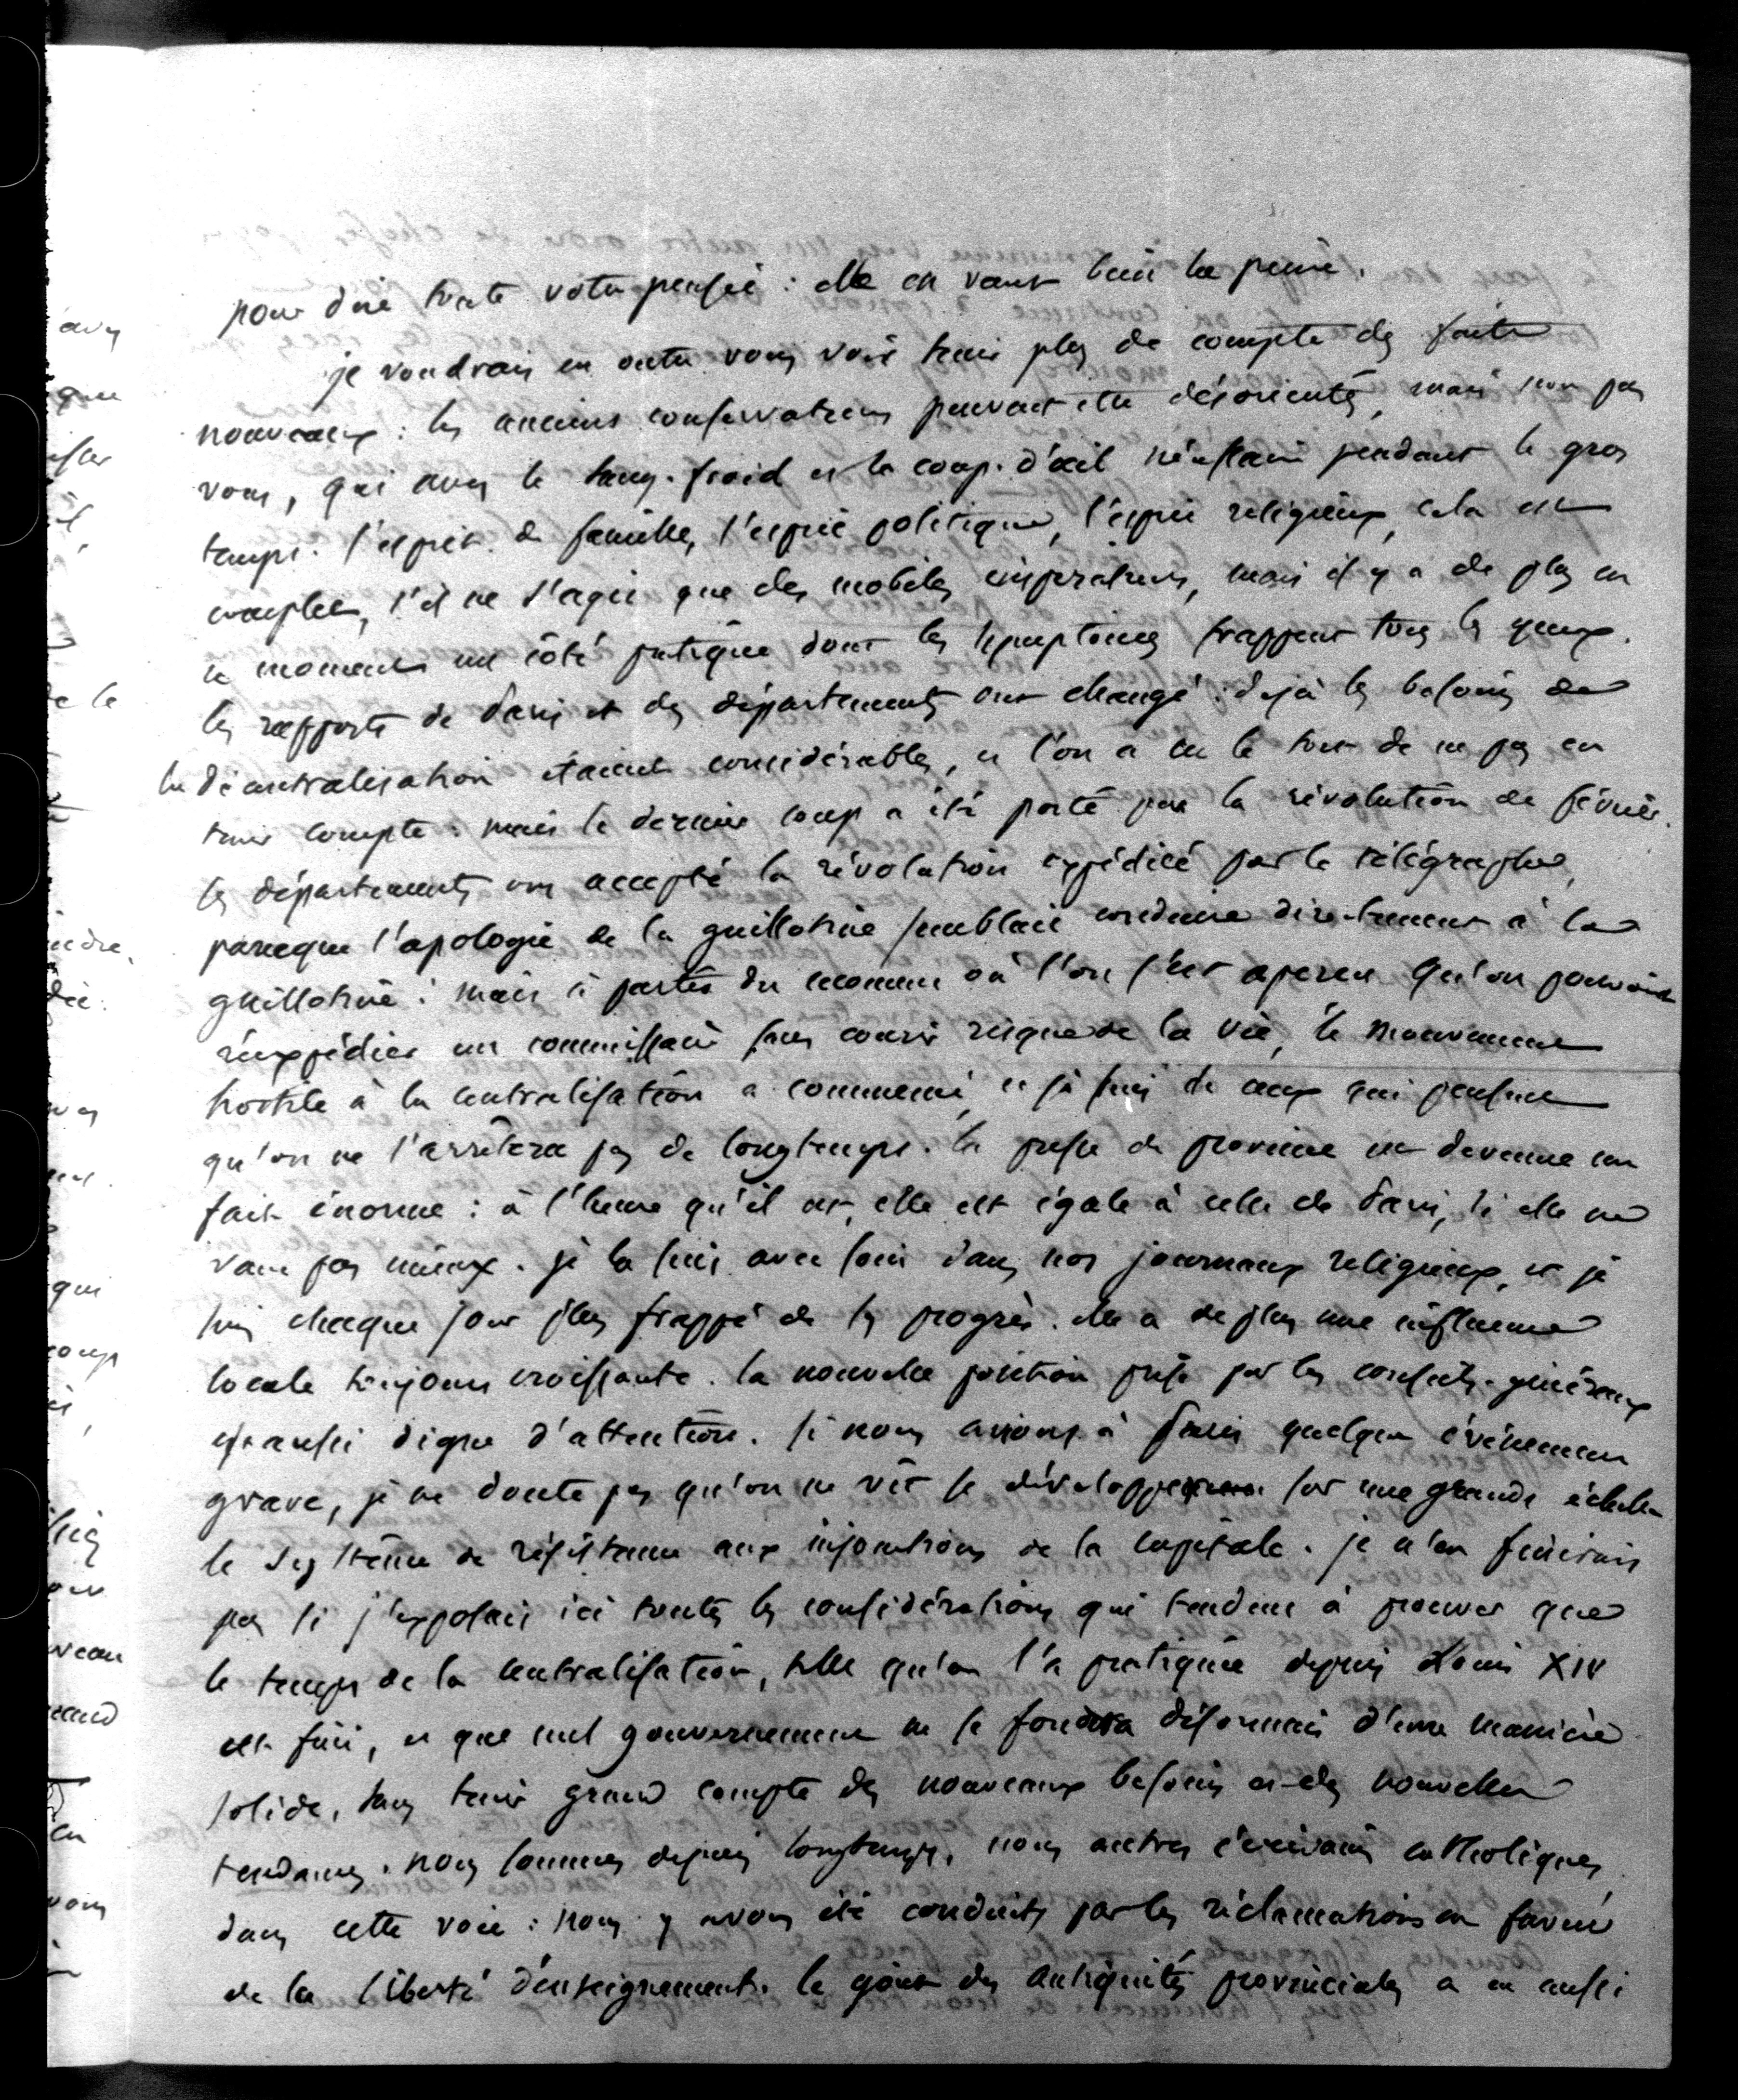 pour dire toute votre pensée : elle en vaut bien la peine.
je voudrais en outre vous voir tenir plus de compte des faits
nouveaux : les anciens conservateurs peuvent être désorientés, mais non pas
vous, qui avez le sang-froid et le coup-d'œil nécessaire pendant le gros
temps. l'esprit de famille, l'esprit politique, l'esprit religieux, cela est
complet, s'il ne s'agit que des mobiles impératifs, mais il y a de plus en
ce moment un côté pratique dont les symptomes frappent tous les yeux.
les rapports de Paris et des départements ont changé : déjà les besoins de
la décentralisation étaient considérables, et l'on a eu le tort de ne pas en
tenir compte : mais le dernier coup a été porté par la révolution de février.
les départements ont accepté la révolution expédiée par le télégraphe,
parceque l'apologie de la guillotine semblait conduire directement à la
guillotine : mais à partir du moment où l'on s'est aperçu qu'on pouvait
réexpédier un commissaire sans courir risque de la vie, le mouvement
hostile à la centralisation a commencé, et je suis de ceux qui pensent
qu'on ne l'arrêtera pas de longtemps. la presse de province est devenue un
fait énorme : à l'heure qu'il est, elle est égale à celle de Paris, si elle ne
vaut pas mieux. je la suis avec soin dans nos journaux religieux, et je
suis chaque jour plus frappé de ses progrès. elle a de plus une influence
locale toujours croissante. la nouvelle position prise par les conseils-généraux
est aussi digne d'attention. si nous avions à Paris quelque événement
grave, je ne doute pas qu'on ne vît se développer sur une grande échelle
le système de résistance aux injonctions de la capitale. je n'en finirais
pas si j'exposais ici toutes les considérations qui tendent à prouver que
le temps de la centralisation, telle qu'on l'a pratiquée depuis Louis XIV
est fini, et que nul gouvernement ne se fondera désormais d'une manière
solide, sans tenir grand compte des nouveaux besoins et des nouvelles
tendances. nous sommes depuis longtemps, nous autres écrivains catholiques,
dans cette voie : nous y avons été conduits par les réclamations en faveur
de la liberté d'enseignement. le goût des antiquités provinciales a eu aussi